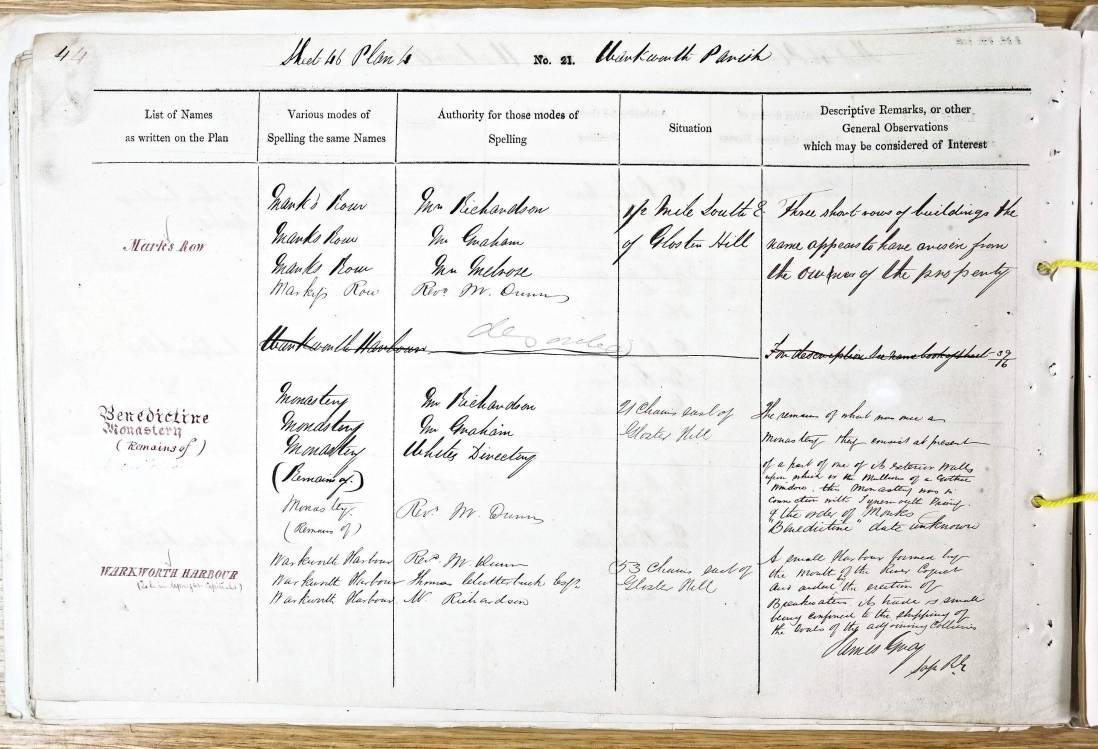 44
Sheet 46 Plan 4 No. 21. Warkworth Parish
List of Names
as written on the Plan
Various modes of
Spelling the same Names
Authority for those modes of
Spelling
Situation
Descriptive Remarks, or other
General Observations
which may be considered of Interest
Mark's Row
Mark's Row
Marks Row
Marks Row
Row
Mr Richardson
Mr Graham
Mr Melrose
Revd. M. Dunn
1/2 Mile South E
of Gloster Hill
Three short rows of buildings the
name appears to have arisen from
the owners of the property
Warkworth Harbour
For description see name book of sheet 39/6
Benedictine
Monastery
(Remains of)
Monastery
Monastery
Monastery
(Remains of)
Monastery
(Remains of)
Mr Richardson
Mr Graham
Whites Directory
Revd. M. Dunn
21 Chains east of
Gloster Hill
The remains of what was once a
Monastery they consist at present
of a part of one of its exterior walls
upon which is the Mullions of a Gothic
window. this Monastery was in
connection with Tynemouth Priory.
of the order of Monks
"Benedictine" date unknown
WARKWORTH HARBOUR
Warkworth Harbour
Warkworth Harbour
Warkworth Harbour
Revd. M. Dunn
Thomas Clutterbuck Esqr.
Mr Richardson
53 Chains east of
Gloster Hill
A small Harbour formed by
the Mouth of the River Coquet
and aided the erection of
Breakwaters, its trade is small
being confined to the shipping of
the Coals of the adjoining Collieries
James Gray
Sap R.E.